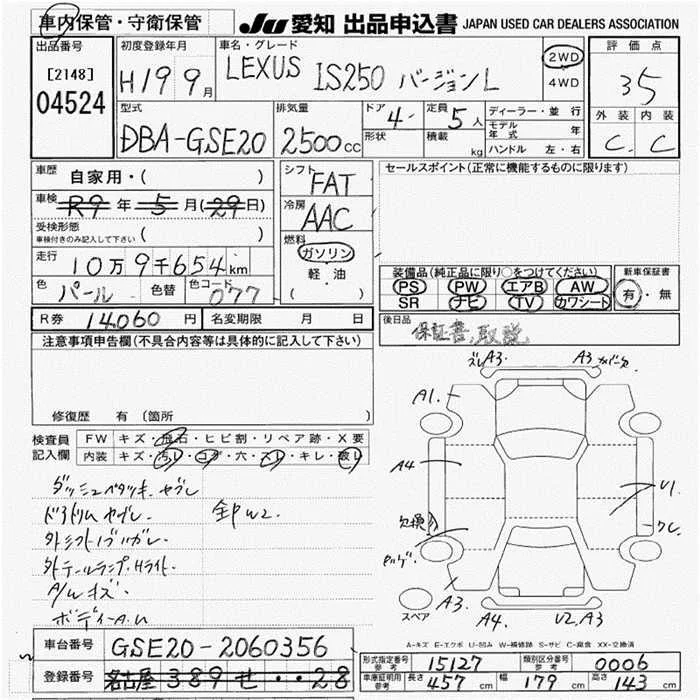 車内保管・守衛保管 JU 愛知 出品申込書 JAPAN USED CAR DEALERS ASSOCIATION
出品番号 [2148] 04524
初度登録年月 H19 9月
車名・グレード LEXUS IS250 バージョンL
2WD
4WD
評価点 35
外装 内装
C C
型式 DBA-GSE20
排気量 2500cc
ドア 4
形状
定員 5人
積載 kg
ディーラー・並行
モデル年式 年
ハンドル 左・右
車歴 自家用・( )
車検 R9年 5月(29日)
受検形態 ( )
車検付きのみ記入して下さい
走行 10万9千654km
色 パール 色替 色コード 077
シフト FAT
冷房 AAC
燃料 ガソリン
軽・油
( )
セールスポイント(正常に機能するものに限ります)
装備品(純正品に限り○をつけてください)
PS PW エアB AW
SR ナビ TV カワシート
新車保証書
有・無
R券 14060円 名変期限 月 日
後日品 保証書、取説
注意事項申告欄(不具合内容等は具体的に記入して下さい)
修復歴 有 〔箇所
検査員記入欄
FW キズ・飛石・ヒビ割・リペア跡・X要
内装 キズ・汚レ・コゲ・穴・スレ・キレ・破レ
ダッシュベタツキ・ヤブレ
ドアトリムヤブレ・
外シフトノブハガレ・
外テールランプ、Hライト・
A/wキズ・
ボディーA.U
全P W2.
ズレA3. A3
A1.
A4
欠損
U1
A3.
A4. U2.A3
スペア
A-キズ E-エクボ U-凹み W-補修跡 S-サビ C-腐食 XX-交換済
車台番号 GSE20-2060356
登録番号 名古屋 389 せ ・・28
形式指定番号 参考 15127
類別区分番号 参考 0006
車庫証明用 参考 長さ 457cm 幅 179cm 高さ 143cm